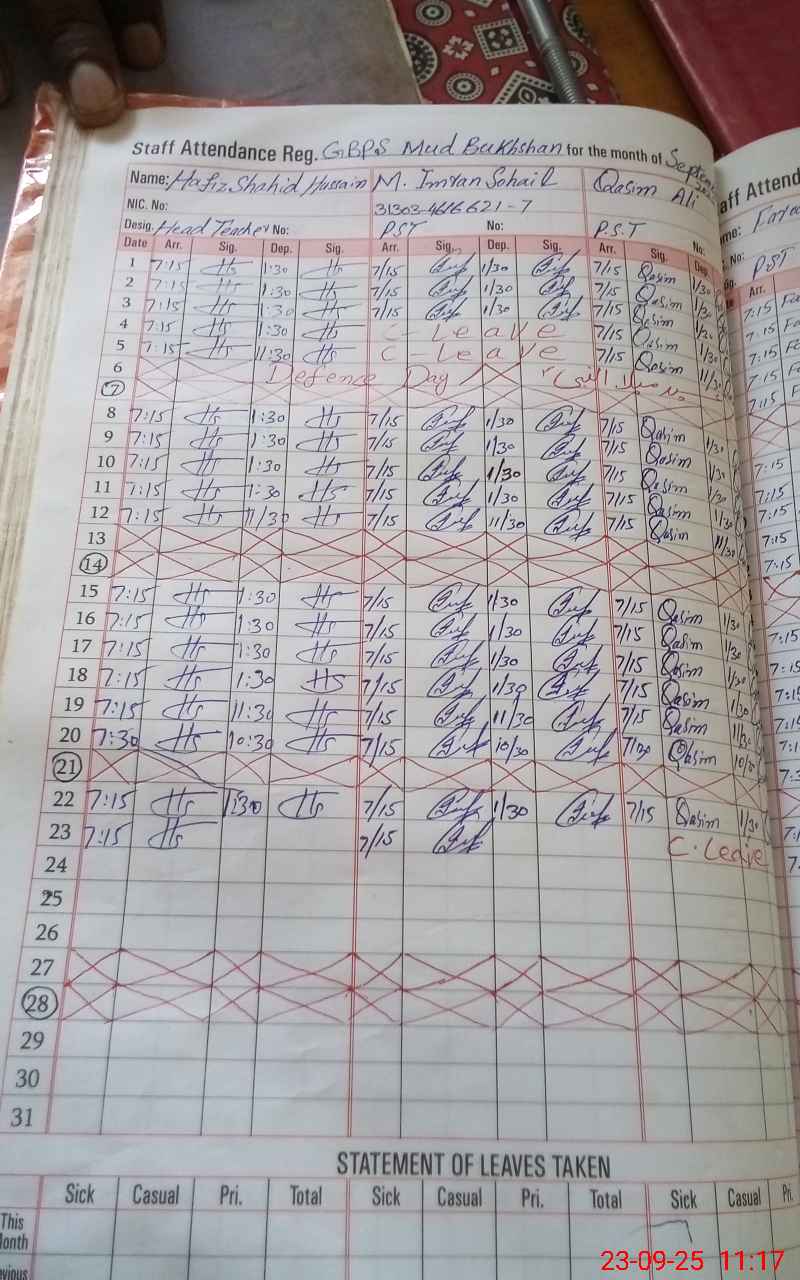 Staff Attendance Reg. GBPS Mud Bukhshan for the month of
Name: Hafiz Shahid Hussain M. Imran Sohail Qasim Ali
NIC. No: 31303-4616621-7
Desig. Head Teacher No: PST No: P.S.T No:
Date Arr. Sig. Dep. Sig. Arr. Sig. Dep. Sig. Arr. Sig. Dep.
1 7:15 Hs 1:30 Hs 7/15 1/30 7/15 Qasim 1/30
2 7:15 Hs 1:30 Hs 7/15 1/30 7/15 Qasim 1/30
3 7:15 Hs 1:30 Hs 7/15 1/30 7/15 Qasim 1/30
4 7:15 Hs 1:30 Hs C-Leave 7/15 Qasim 1/30
5 7:15 Hs 11:30 Hs C-Leave 7/15 Qasim 11/30
6 Defence Day
7
8 7:15 Hs 1:30 Hs 7/15 1/30 7/15 Qasim 1/30
9 7:15 Hs 1:30 Hs 7/15 1/30 7/15 Qasim 1/30
10 7:15 Hs 1:30 Hs 7/15 1/30 7/15 Qasim 1/30
11 7:15 Hs 1:30 Hs 7/15 1/30 7/15 Qasim 1/30
12 7:15 Hs 11/30 Hs 7/15 11/30 7/15 Qasim 11/30
13
14
15 7:15 Hs 1:30 Hs 7/15 1/30 7/15 Qasim 1/30
16 7:15 Hs 1:30 Hs 7/15 1/30 7/15 Qasim 1/30
17 7:15 Hs 1:30 Hs 7/15 1/30 7/15 Qasim 1/30
18 7:15 Hs 1:30 Hs 7/15 1/30 7/15 Qasim 1/30
19 7:15 Hs 11:30 Hs 7/15 11/30 7/15 Qasim 11/30
20 7:30 Hs 10:30 Hs 7/15 10/30 7/30 Qasim 10/30
21
22 7:15 Hs 1:30 Hs 7/15 1/30 7/15 Qasim 1/30
23 7:15 Hs 7/15 C. Leave
24
25
26
27
28
29
30
31
STATEMENT OF LEAVES TAKEN
Sick Casual Pri. Total Sick Casual Pri. Total Sick Casual Pri.
This
Month
23-09-25 11:17